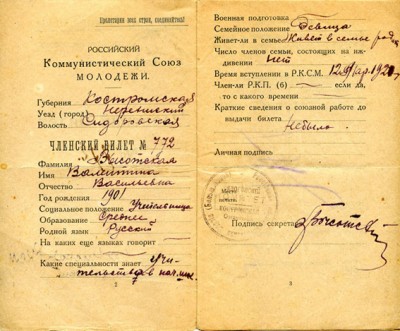 Пролетарии всех стран, соединяйтесь!
РОССИЙСКИЙ
Коммунистический Союз
МОЛОДЕЖИ.
Губерния Костромская
Уезд (город) Нерехтский
Волость Сидоровская
ЧЛЕНСКИЙ БИЛЕТ № 772
Фамилия Высотская
Имя Валентина
Отчество Васильевна
Год рождения 1901
Социальное положение Учительница
Образование Среднее
Родной язык Русский
На каких еще языках говорит
Какие специальности знает Учи-
тельство в
2
Военная подготовка
Семейное положение Девица
Живет-ли в семье Живет в семье
Число членов семьи, состоящих на иж-
дивении нет
Время вступления в Р.К.С.М. 1920
Член-ли Р.К.П. (б) если да,
то с какого времени
Краткие сведения о союзной работе до
выдачи билета
Небыло
Личная подпись
Подпись секрет
3